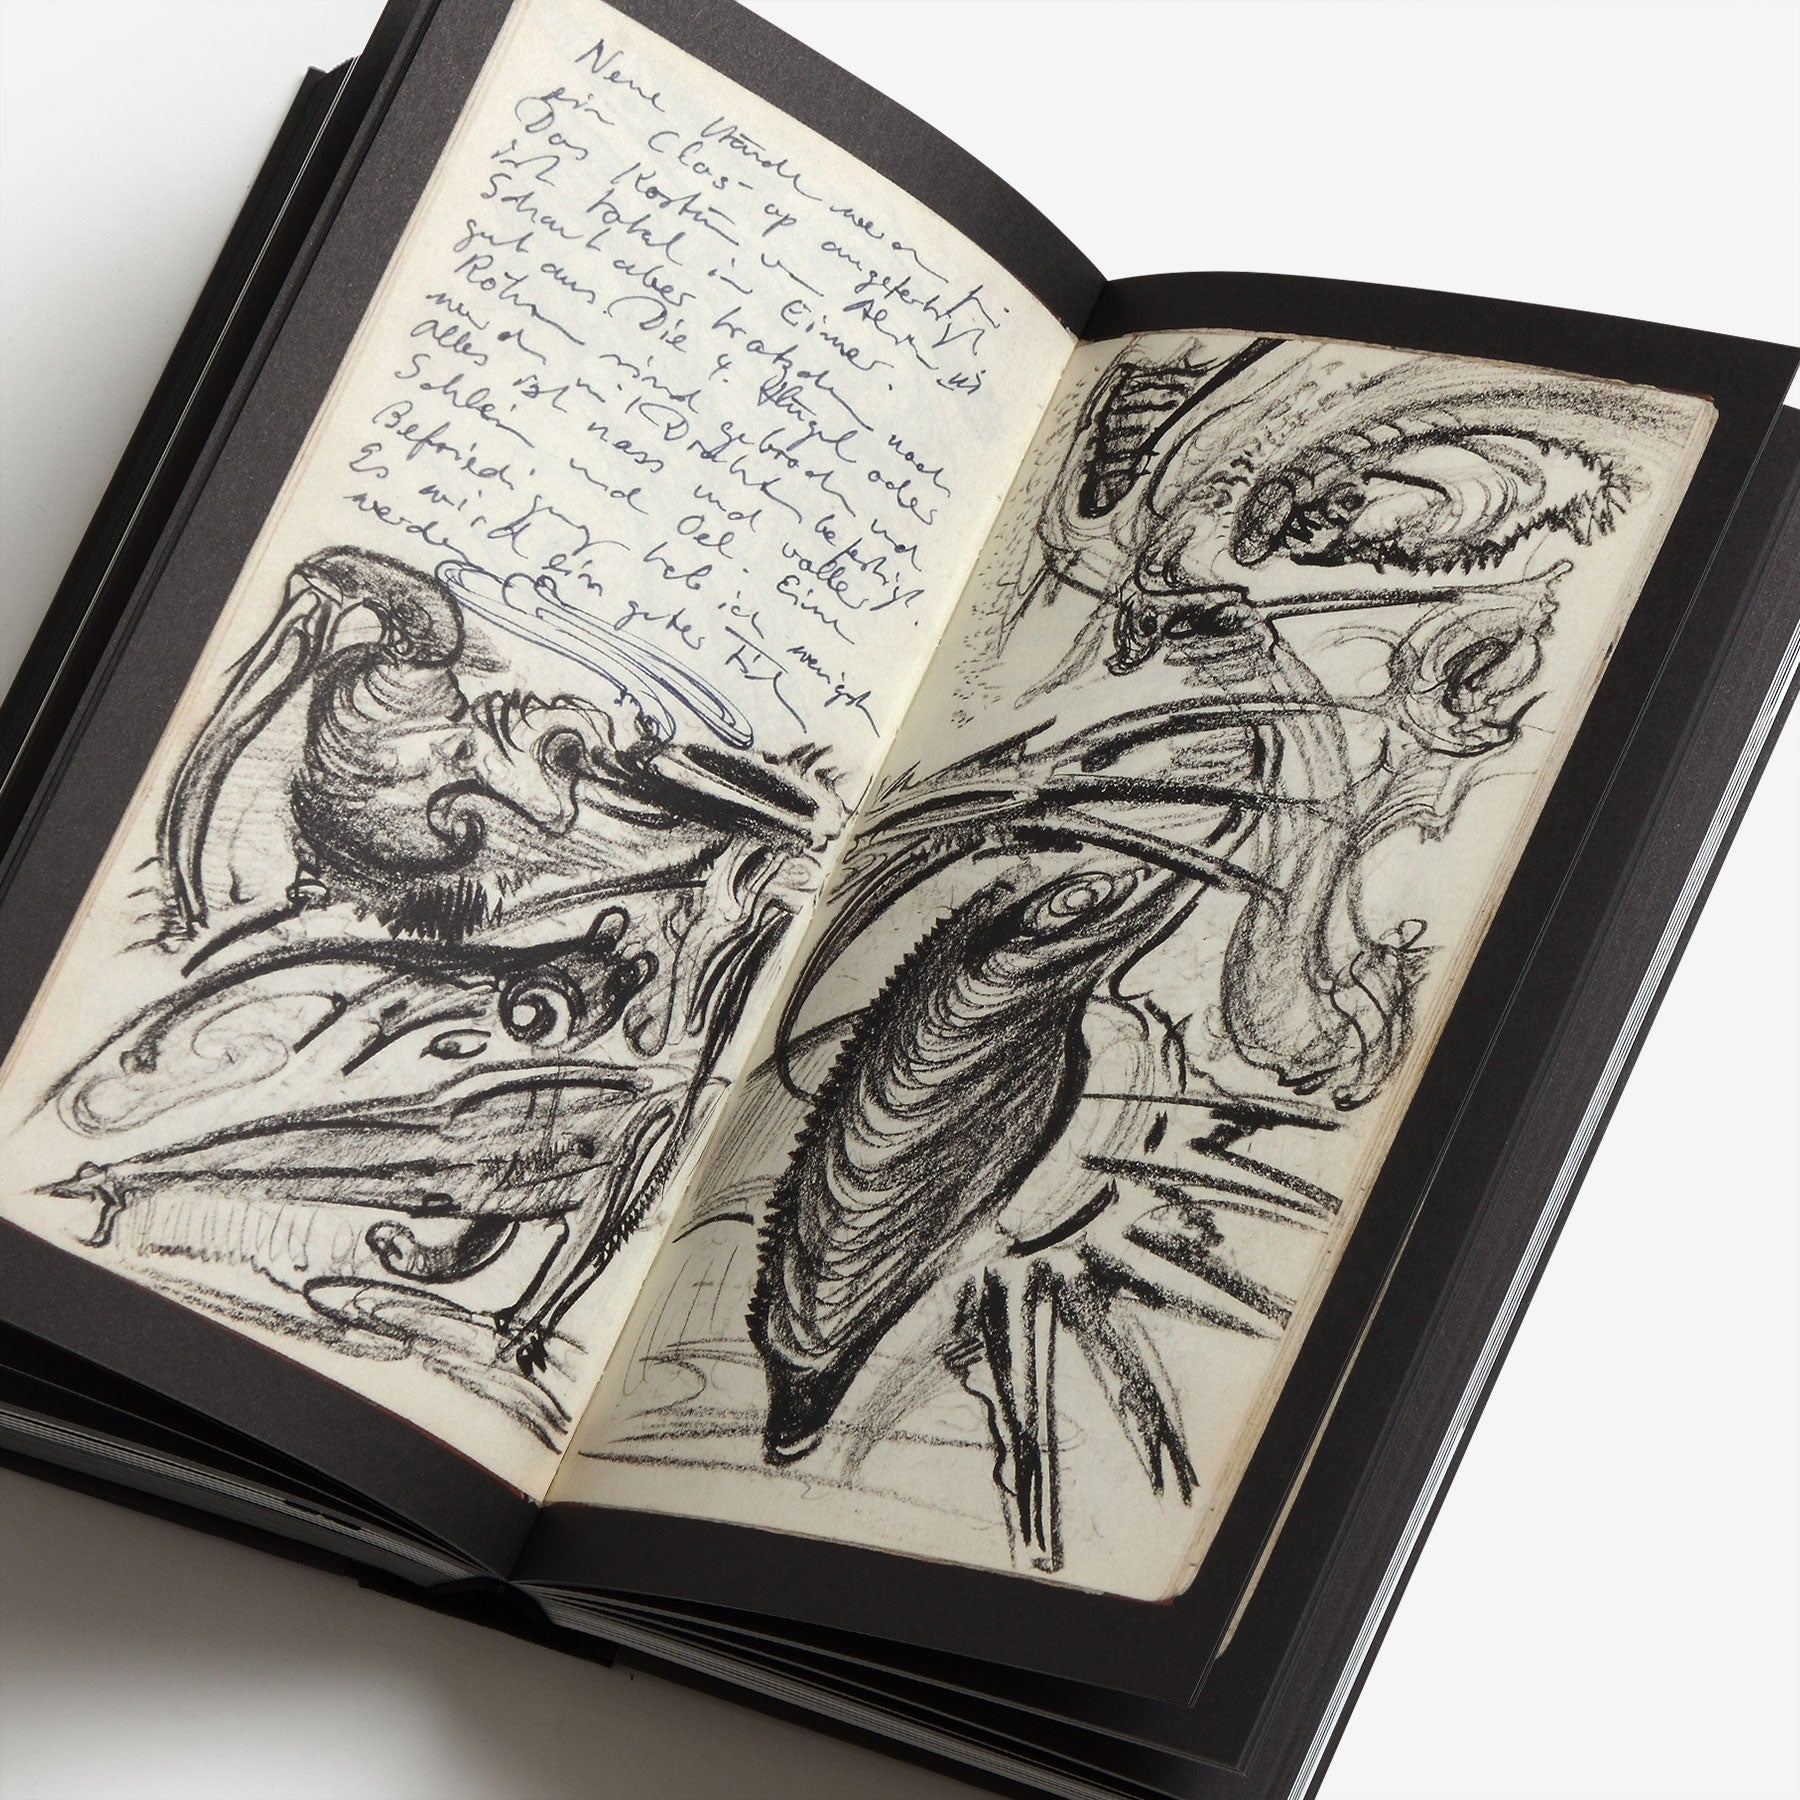 Neue Hände werden für
ein Clos-up angefertigt.
Das Kostüm v. Alien III
ist total im Eimer.
Schaut aber trotzdem noch
gut aus. Die 4. Flügel oder
Röhren sind gebrochen und
werden mit Drähten befestigt.
Alles ist nass und voller
Schleim und Oel. Eine
Befriedigung hab ich wenigsten
Es wird ein guter Film
werden